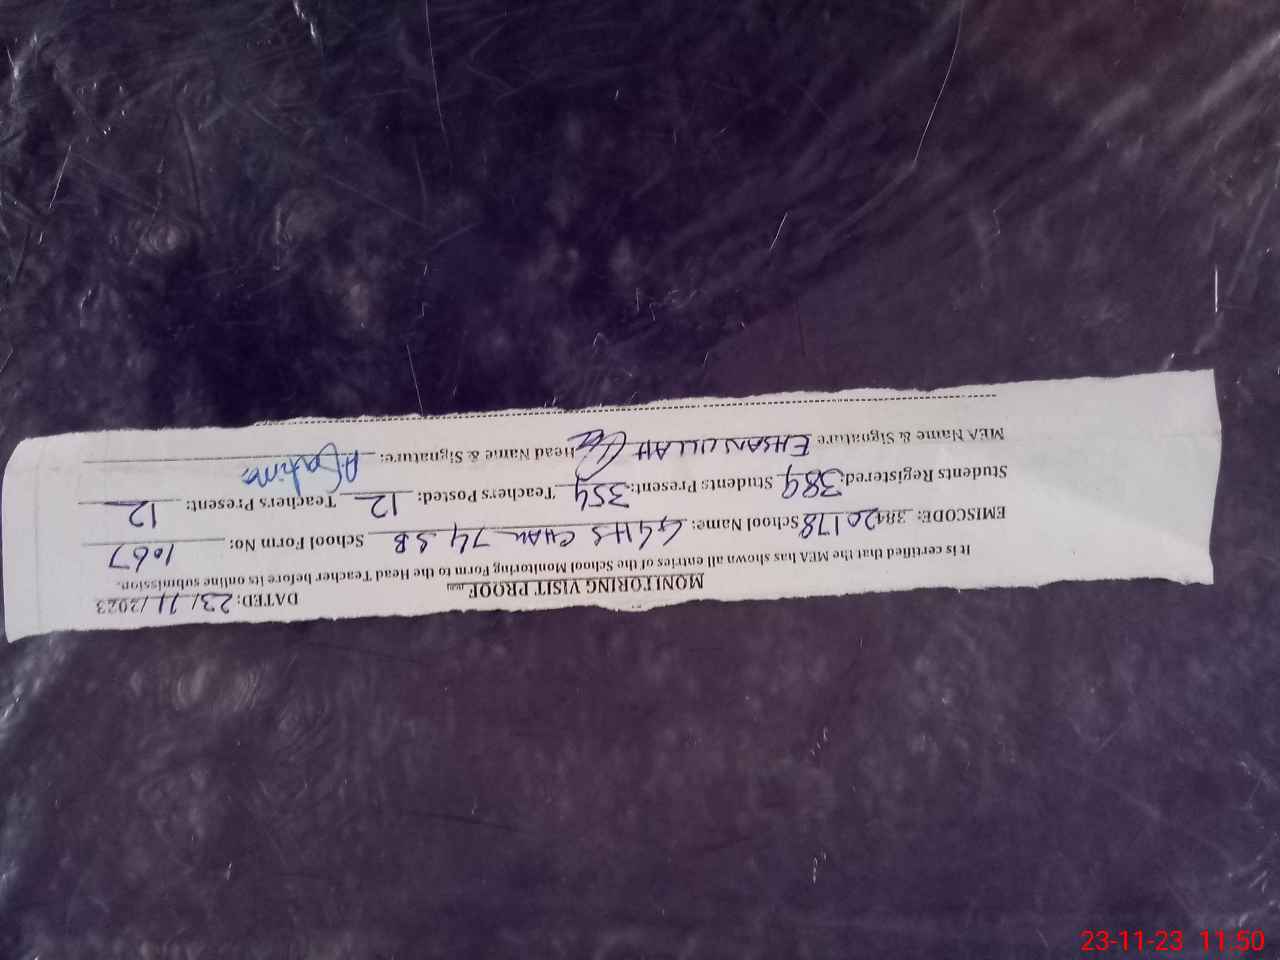 MONITORING VISIT PROOF
DATED: 23/11/2023
It is certified that the MEA has shown all entries of the School Monitoring Form to the Head Teacher before its online submission.
EMISCODE: 38420178 School Name: GGHS CHAK 74 SB School Form No: 1067
Students Registered: 389 Students Present: 354 Teachers Posted: 12 Teachers Present: 12
MEA Name & Signature EHSAN ULLAH Head Name & Signature:
23-11-23 11:50